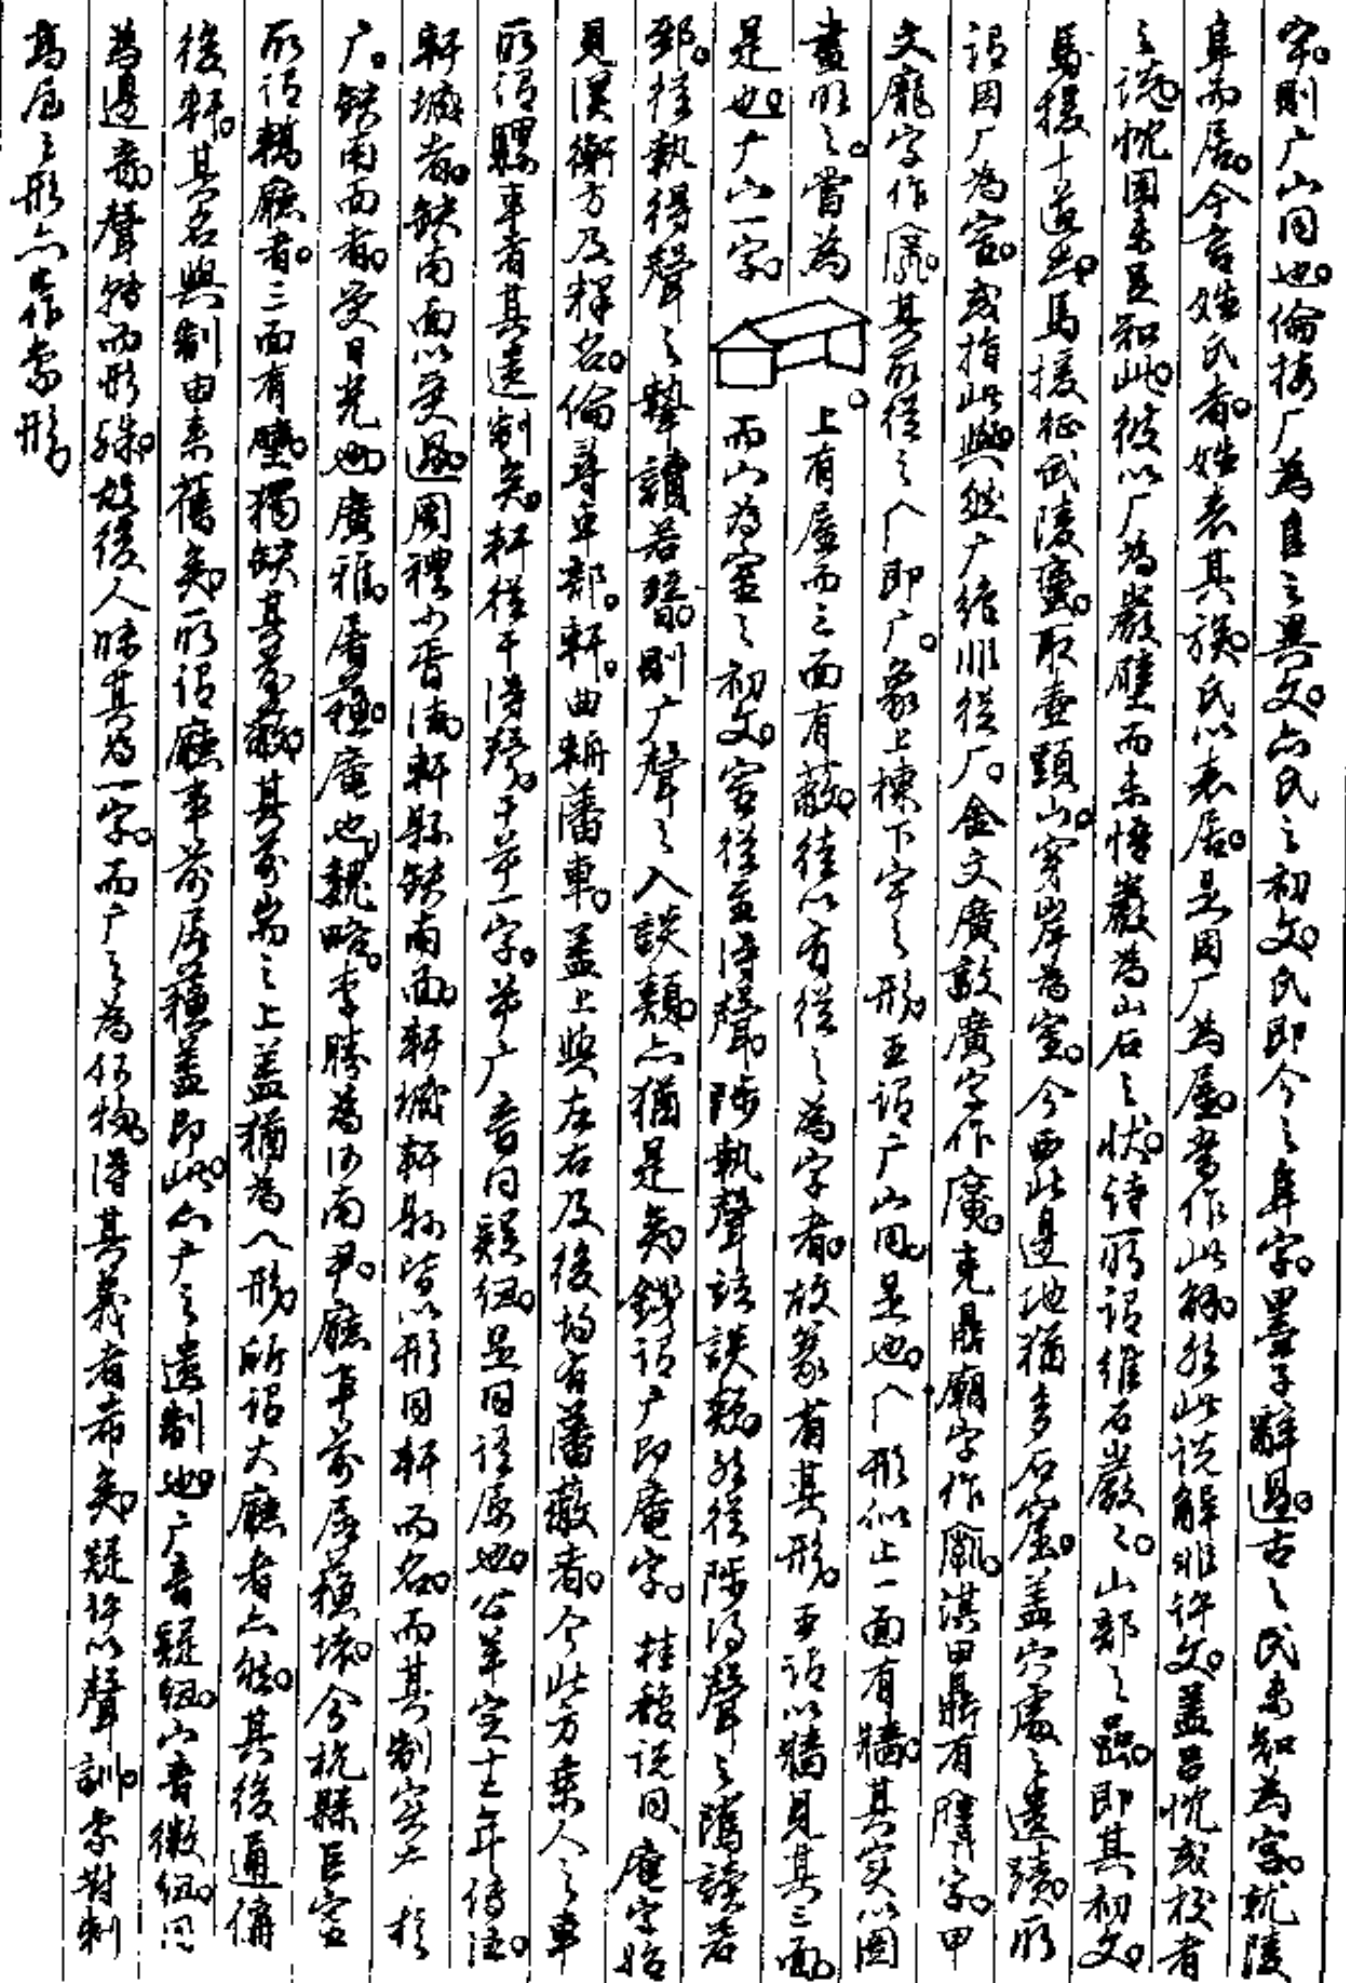 字。則广宀同也。倫按厂為𠂤之異文。亦氏之初文。氏即今之阜字。墨子辭過。古之民未知為宮。就陵
阜而居。今言姓氏者。姓表其族。氏以表居。是因厂為屋。當作此解。然此說解非許文。蓋呂忱或校者
之說。忱固未足知此。彼以厂為巖壁而未悟巖為山石之狀。詩所謂維石巖之。山部之嵒。即其初文。
馬援十道志。馬援征武陵蠻。取壺頭山。穿岸為室。今西北邊地猶多石窟。蓋穴處之遺蹟。所
謂因厂為宮。或指此與。然广篆非從厂。金文廣敦廣字作廣。克鼎廟字作廟。淇田鼎有字。甲
文龐字作龐。其所從之即广。象上棟下宇之形。王謂广宀同。是也。形似止一面有牆。其實以圖
畫明之。當為。上有屋而三面有蔽。徒以有從之為字者。故篆省其形。王謂以牆見其三面。
是也。广宀一字。而宀為室之初文。室從至得聲。陟執聲談類。然從陟得聲之騭讀若
郅。從執得聲之摯讀若晉。則广聲之入談類。亦猶是矣。錢謂广即庵字。桂馥說同。庵字始
見漢衡方及釋名。倫尋車部。軒。曲輈藩車。蓋上與左右及後均有藩蔽者。今北方乘人之車
所謂騾車者其遺制矣。軒從干得聲。干屰一字。屰广音同疑紐。是同語原也。公羊定十二年傳注。
軒城者。缺南面以受過。周禮小胥注。軒縣缺南面。軒城軒縣皆以形同軒而名。而其制實亦於
广。缺南面者。受日光也。廣雅。屠蘇。庵也。魏略。李勝為河南尹。廳事前屠蘇壞。今杭縣巨室
所謂轎廳者。三面有壁。獨缺其前蔽。其前耑之上蓋猶為形。所謂大廳者亦然。其後通備
後軒。其名與制由來舊矣。所謂廳事前屠蘇蓋即此。亦广之遺制也。广音疑紐。宀音微紐。同
為邊音。聲轉而形殊。故後人昧其為一字。而广之為何物。得其義者希矣。疑許以聲訓。象對剌
高屋之形亦當作象形。